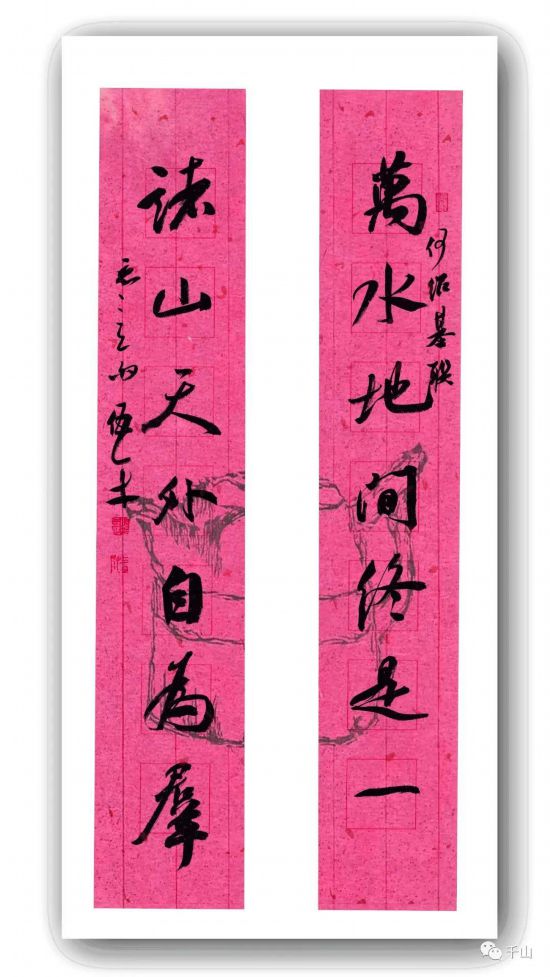 萬水地间终是一
何绍基联
诸山天外自为羣
千山